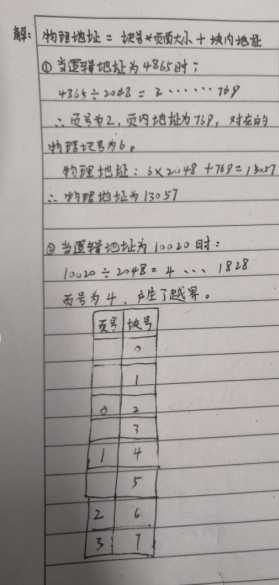 解: 物理地址 = 块号*页面大小 + 块内地址
① 当逻辑地址为4865时:
4865÷2048 = 2 …… 769
∴ 页号为2, 页内地址为769, 对应的
物理块号为6。
物理地址: 6×2048 + 769 = 13057
∴ 物理地址为13057
② 当逻辑地址为10020时:
10020 ÷ 2048 = 4 … 1828
页号为4, 产生了越界。
页号 块号
0
1
0 2
3
1 4
5
2 6
3 7